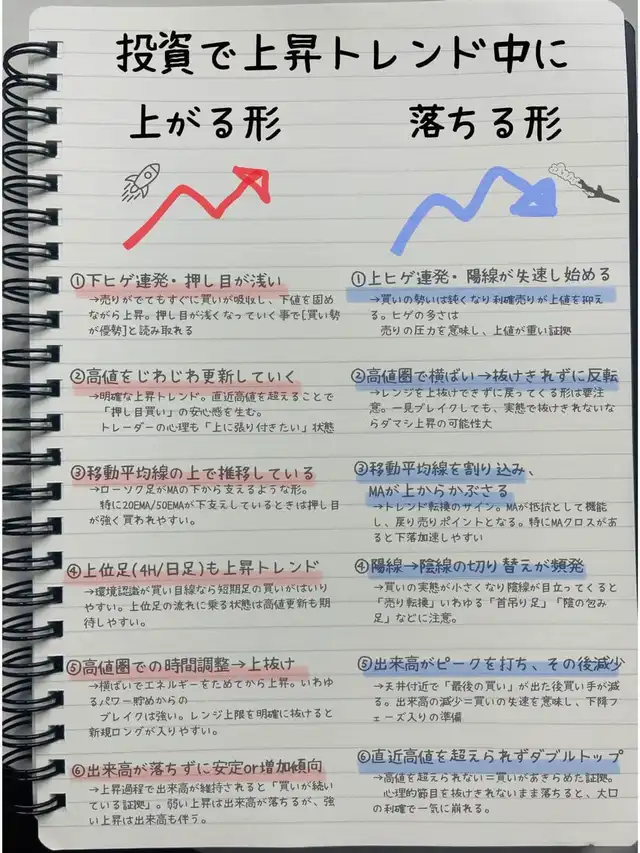 投資で上昇トレンド中に
上がる形
①下ヒゲ連発・押し目が浅い
→売りがでてもすぐに買いが吸収し、下値を固め
ながら上昇。押し目が浅くなっていく事で[買い勢
が優勢]と読み取れる
②高値をじわじわ更新していく
→明確な上昇トレンド。直近高値を超えることで
「押し目買い」の安心感を生む。
トレーダーの心理も「上に張り付きたい」状態
③移動平均線の上で推移している
→ローソク足がMAの下から支えるような形。
特に20EMA/50EMAが下支えしているときは押し目
が強く買われやすい。
④上位足(4H/日足)も上昇トレンド
→環境認識が買い目線なら短期足の買いがはいり
やすい。上位足の流れに乗る状態は高値更新も期
待しやすい。
⑤高値圏での時間調整→上抜け
→横ばいでエネルギーをためてから上昇。いわゆ
るパワー貯めからの
ブレイクは強い。レンジ上限を明確に抜けると
新規ロングが入りやすい。
⑥出来高が落ちずに安定or増加傾向
→上昇過程で出来高が維持されると「買いが続い
ている証拠」。弱い上昇は出来高が落ちるが、強
い上昇は出来高も伴う。
落ちる形
①上ヒゲ連発・陽線が失速し始める
→買いの勢いは鈍くなり利確売りが上値を抑え
る。ヒゲの多さは
売りの圧力を意味し、上値が重い証拠
②高値圏で横ばい→抜けきれずに反転
→レンジを上抜けできずに戻ってくる形は要注
意。一見ブレイクしても、実態で抜けきれないな
らダマシ上昇の可能性大
③移動平均線を割り込み、
MAが上からかぶさる
→トレンド転換のサイン。MAが抵抗として機能
し、戻り売りポイントとなる。特にMAクロスがあ
ると下落加速しやすい
④陽線→陰線の切り替えが頻発
→買いの実態が小さくなり陰線が目立ってくると
「売り転換」いわゆる「首吊り足」「陰の包み
足」などに注意。
⑤出来高がピークを打ち、その後減少
→天井付近で「最後の買い」が出た後買い手が減
る。出来高の減少＝買いの失速を意味し、下降フ
ェーズ入りの準備
⑥直近高値を超えられずダブルトップ
→高値を超えられない＝買いがあきらめた証拠。
心理的節目を抜けきれないまま落ちると、大口
の利確で一気に崩れる。